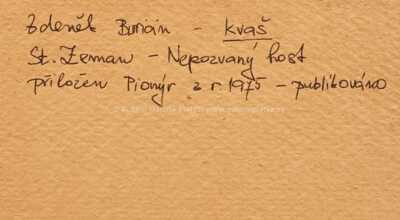 Zdeněk Burian - kvaš
St. Zeman - Nepozvaný host
přiložen Pionýr z r. 1975 - publikováno